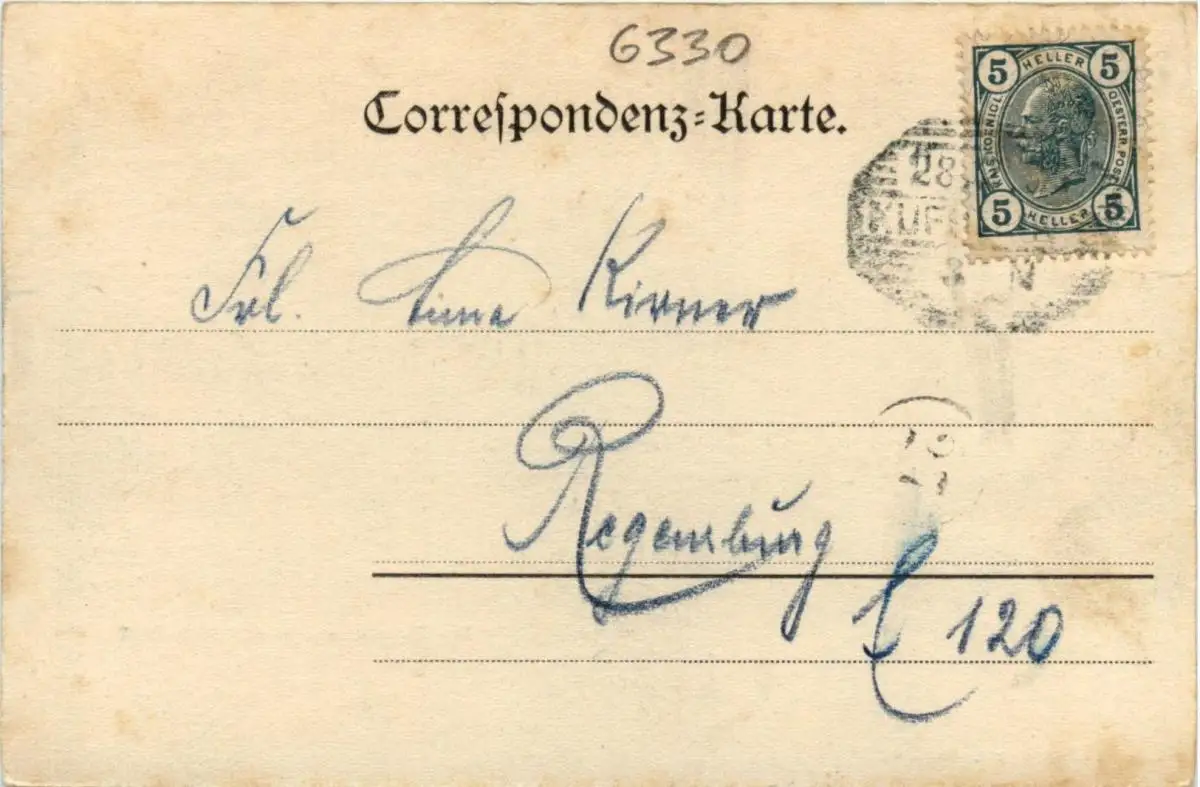 6330
Correſpondenz-Karte.
5 HELLER 5
KAIS. KOENIGL. OESTERR. POST
5 HELLER 5
28
KUF
3 N
Frl. Anna Kirner
Regensburg
120